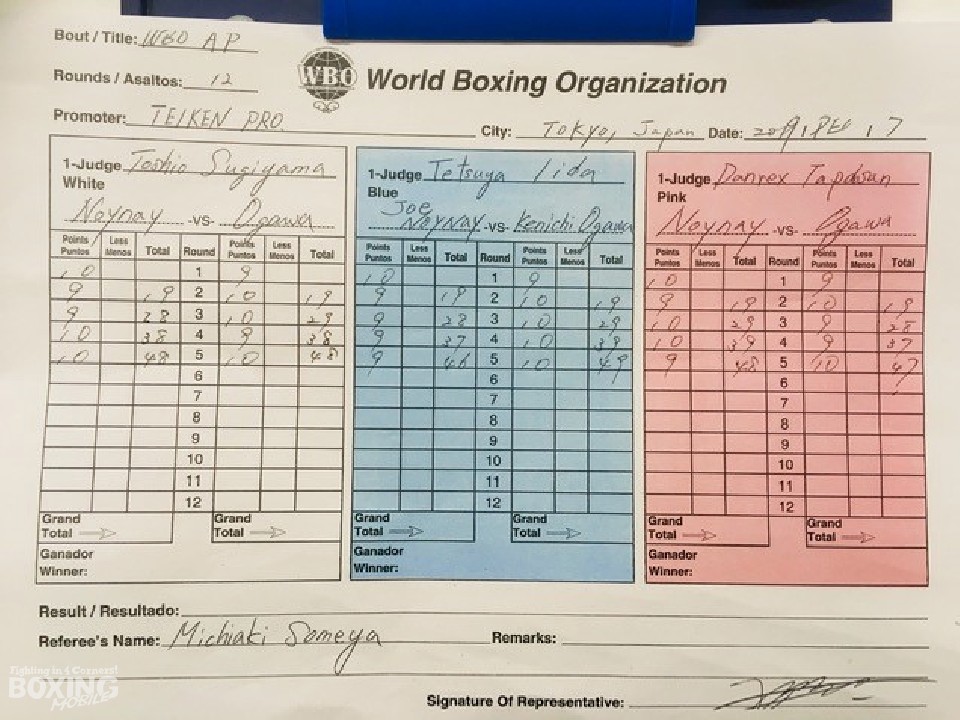 Bout / Title: WBO AP
Rounds / Asaltos: 12
WBO World Boxing Organization
Promoter: TEIKEN PRO. City: Tokyo, Japan Date:
1-Judge Toshio Sugiyama
White
Noynay -vs- Ogawa
Points Puntos Less Menos Total Round Points Puntos Less Menos Total
10 1 9
9 19 2 10 19
9 28 3 10 29
10 38 4 9 38
10 48 5 10 48
6
7
8
9
10
11
12
Grand Total Grand Total
Ganador
Winner:
1-Judge Tetsuya Iida
Blue
Joe Noynay -vs- Kenichi Ogawa
Points Puntos Less Menos Total Round Points Puntos Less Menos Total
10 1 9
9 19 2 10 19
9 28 3 10 29
9 37 4 10 39
9 46 5 10 49
6
7
8
9
10
11
12
Grand Total Grand Total
Ganador
Winner:
1-Judge Danrex Tapdasan
Pink
Noynay -vs- Ogawa
Points Puntos Less Menos Total Round Points Puntos Less Menos Total
10 1 9
9 19 2 10 19
10 29 3 9 28
10 39 4 9 37
9 48 5 10 47
6
7
8
9
10
11
12
Grand Total Grand Total
Ganador
Winner:
Result / Resultado:
Referee's Name: Michiaki Someya Remarks:
Signature Of Representative:
Fighting in 4 Corners!
BOXING
MOBILE